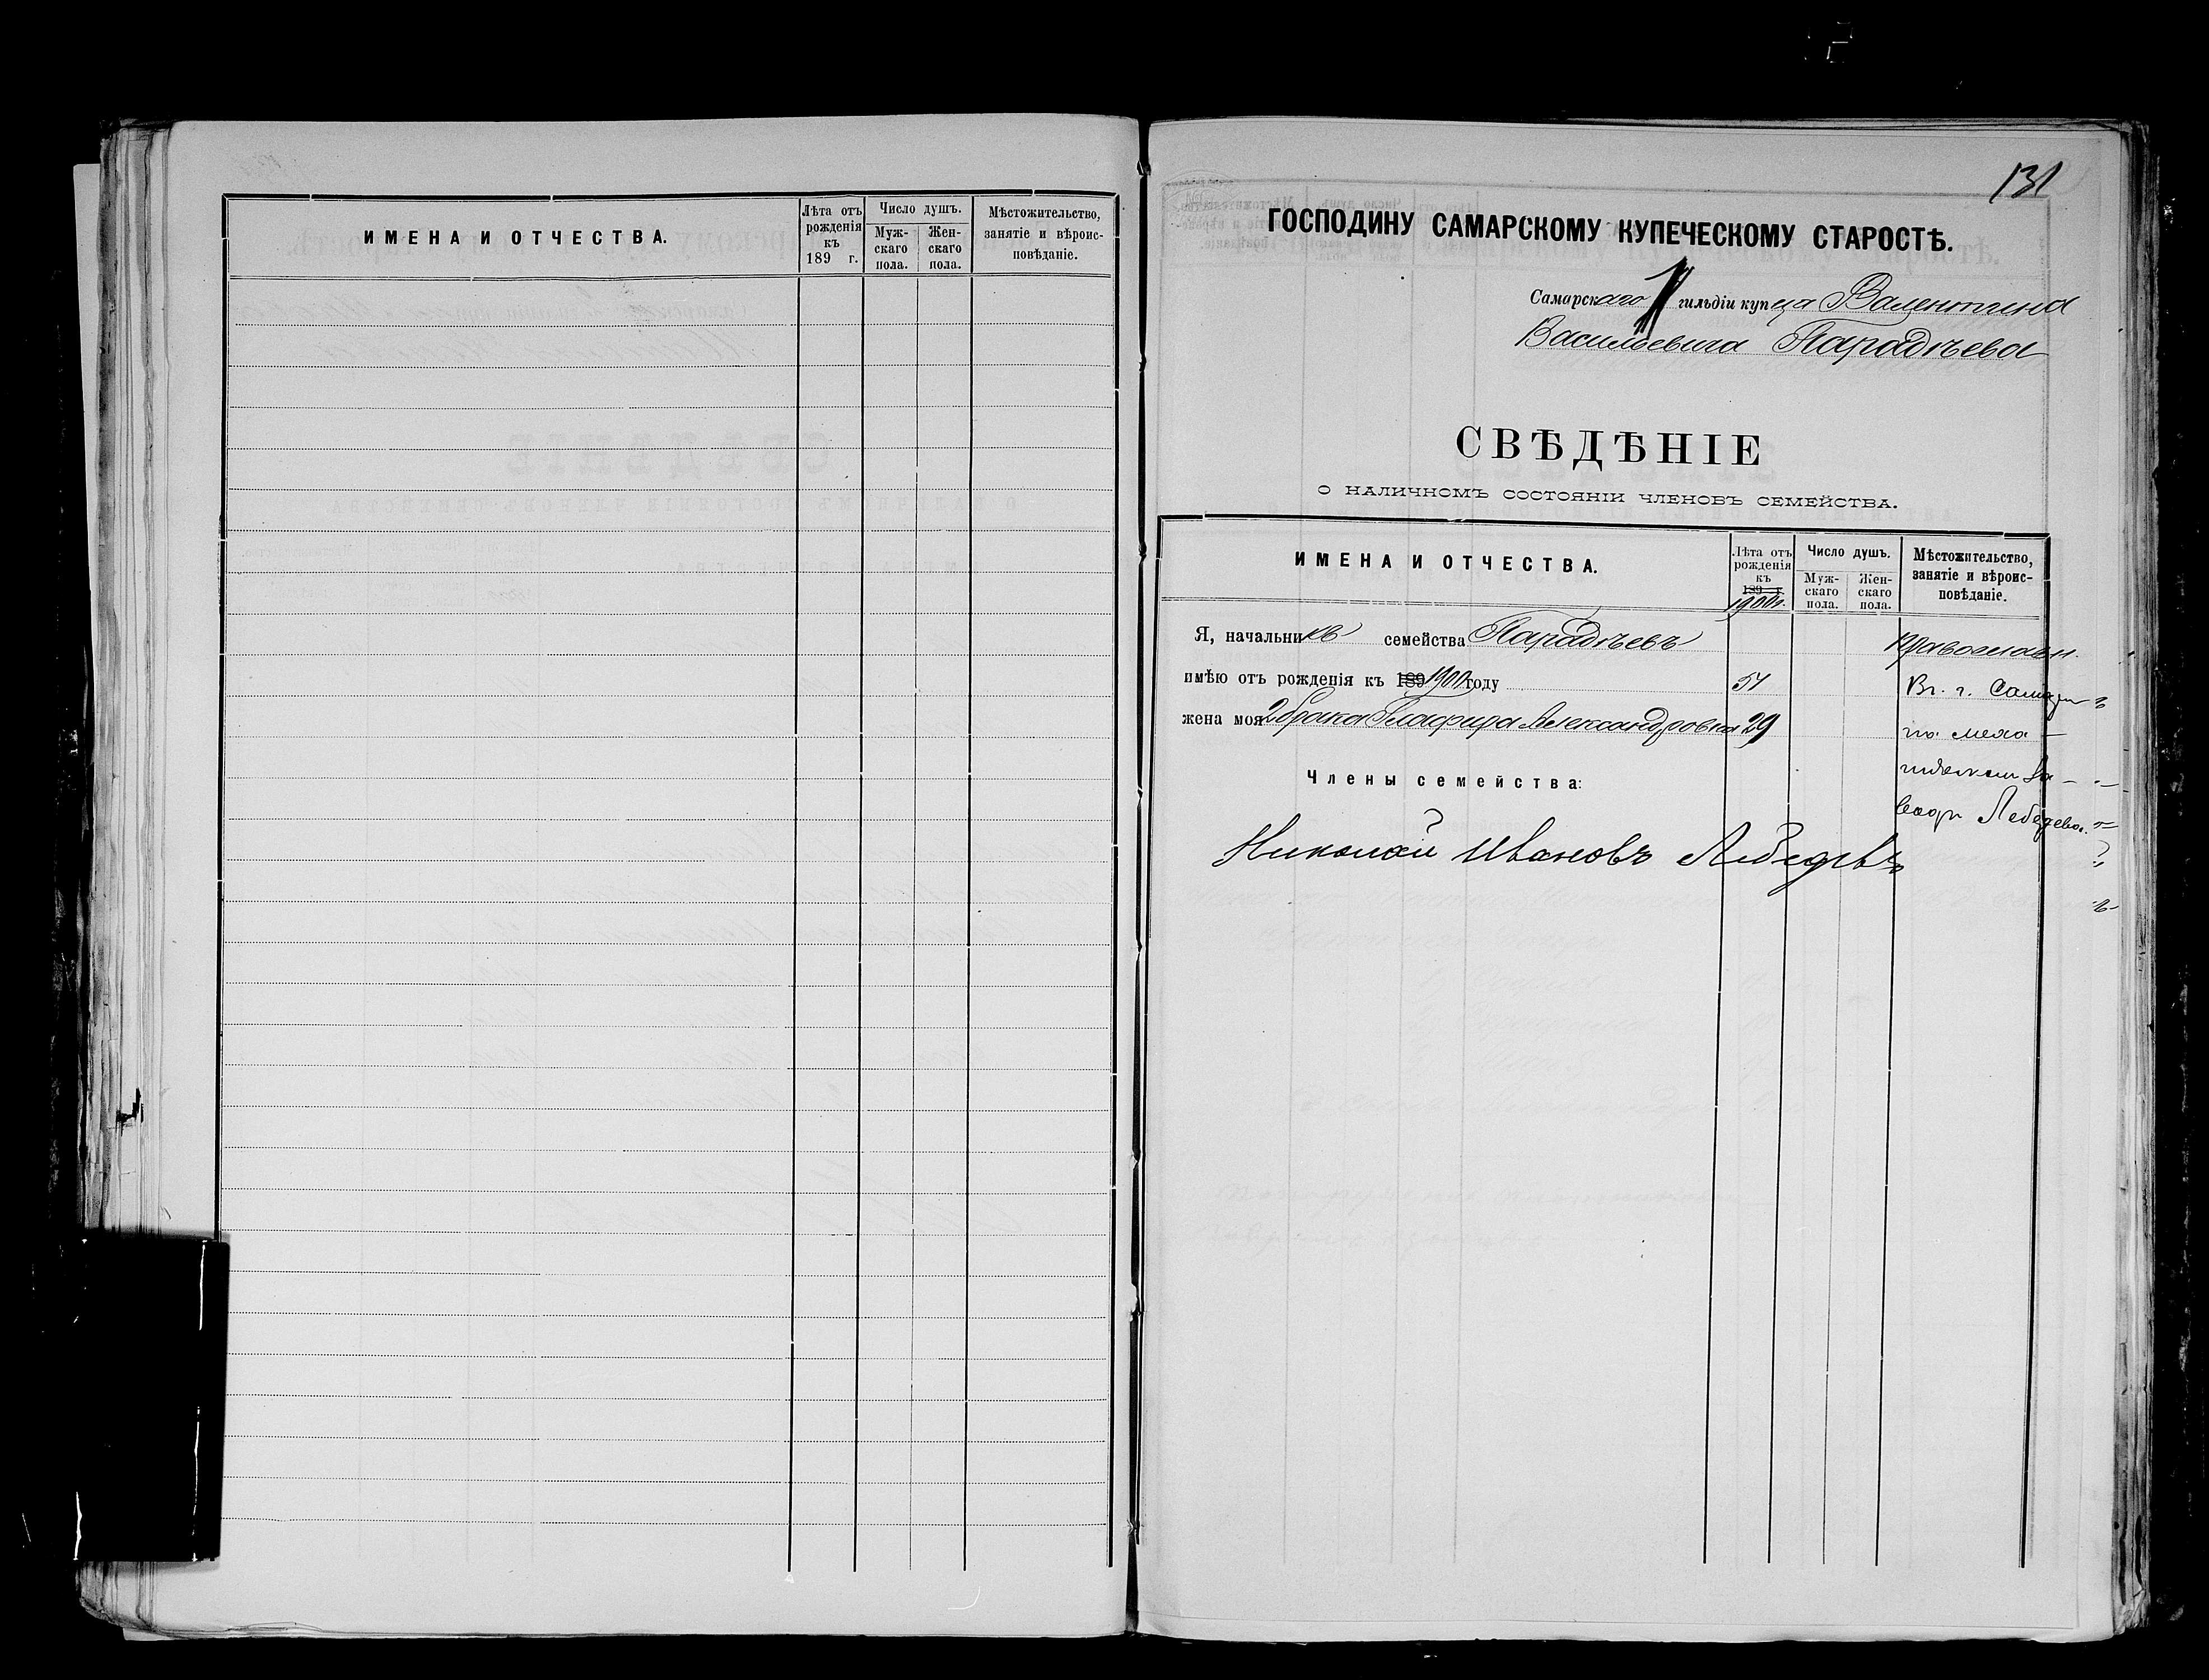 ИМЕНА И ОТЧЕСТВА.
Лѣта отъ
рожденія
къ
189 г.
Число душъ.
Муж-
скаго
пола.
Жен-
скаго
пола.
Мѣстожительство,
занятіе и вѣроис-
повѣданіе.
131
ГОСПОДИНУ САМАРСКОМУ КУПЕЧЕСКОМУ СТАРОСТѢ.
Самарскаго гильдіи купца Валентина
Васильевича Парадѣева
СВѢДѢНІЕ
О НАЛИЧНОМЪ СОСТОЯНІИ ЧЛЕНОВЪ СЕМЕЙСТВА.
ИМЕНА И ОТЧЕСТВА.
Лѣта отъ
рожденія
къ
189 г.
1900г.
Число душъ.
Муж-
скаго
пола.
Жен-
скаго
пола.
Мѣстожительство,
занятіе и вѣроис-
повѣданіе.
Я, начальникъ семейства Парадѣевъ
православн.
имѣю отъ рожденія къ 189 1900 году 51
Въ г. Самарѣ
жена моя 2 брака Глафира Александровна 29
на меха
Члены семейства:
Лебедева.
Николай Ивановъ Лебедевъ